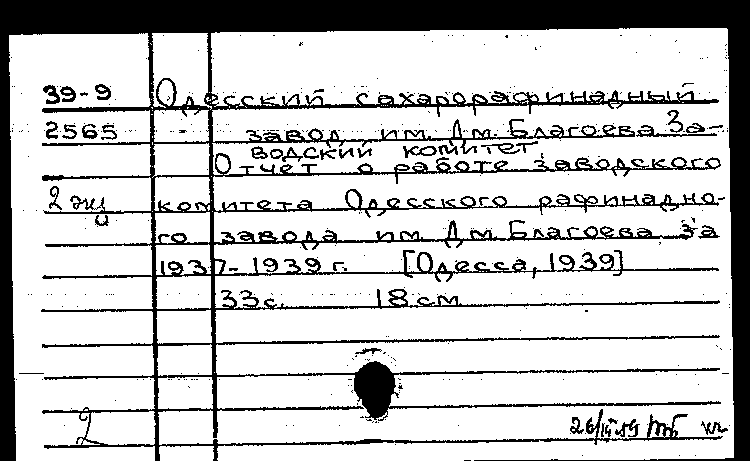 39-9 Одесский сахарорафинадный
2565 завод им. Дм. Благоева За-
водский комитет.
Отчет о работе заводского
2 экз комитета Одесского рафинадно-
го завода им. Дм. Благоева за
1937-1939 г. [Одесса, 1939]
33 с. 18 см
2